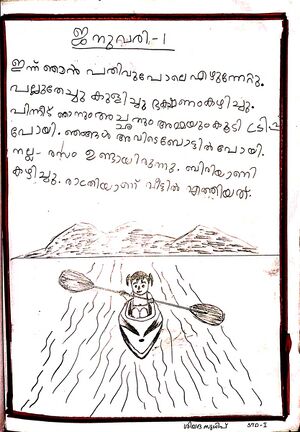 ജനുവരി-1
ഇന്ന് ഞാൻ പതിവുപോലെ എഴുന്നേറ്റു.
പല്ലുതേച്ചു കുളിച്ചു ഭക്ഷണംകഴിച്ചു.
പിന്നീട് ഞാനും അച്ഛനും അമ്മയും കൂടി ട്രിപ്പ്
പോയി. ഞങ്ങൾ അവിടെ ബോട്ടിൽ പോയി.
നല്ല രസം ഉണ്ടായിരുന്നു. ബിരിയാണി
കഴിച്ചു. രാത്രിയാണ് വീട്ടിൽ എത്തിയത്.
STD-I